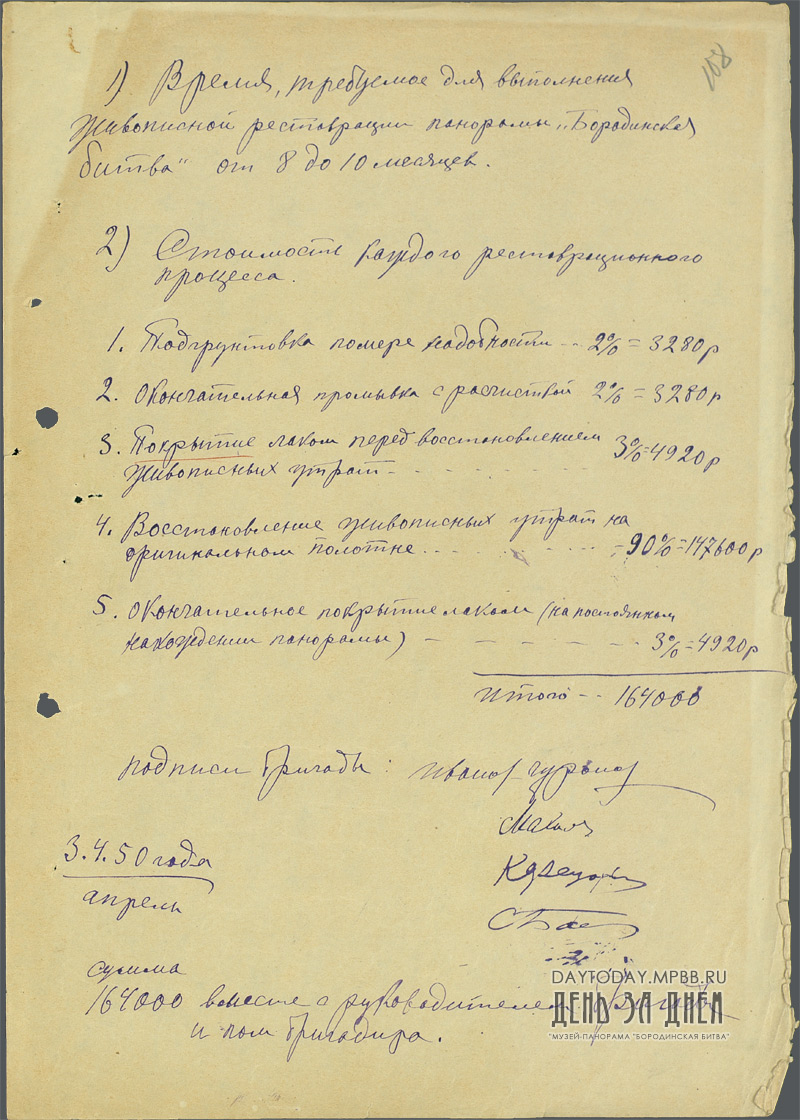 108
1) Время, требуемое для выполнения
живописной реставрации панорамы „Бородинская
битва" от 8 до 10 месяцев.
2) Стоимость каждого реставрационного
процесса.
1. Подгрунтовка помере надобности -- 2% = 3280р
2. окончательная промывка с расчисткой 2% = 3280р
3. Покрытие лаком перед восстановлением 3% = 4920р
живописных утрат - - - - - -
4. Восстановление живописных утрат на
оригинальном полотне . . - - - - - = 90% = 147600р
5. окончательное покрытие лаком (на постоянном
нахождении панорамы) - - - - - - 3% = 4920р
Итого -- 164000
подписи бригады:
3.4.50 года
апрель
сумма
164000 вместе с руководителем
и пом бригадира.
DAYTODAY.MPBB.RU
ДЕНЬ ЗА ДНЁМ
"МУЗЕЙ-ПАНОРАМА "БОРОДИНСКАЯ БИТВА"